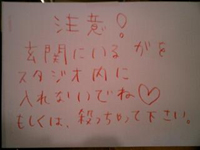 注意!
玄関にいる がを
スタジオ内に
入れないでね♡
もしくは、殺っちゃって下さい。